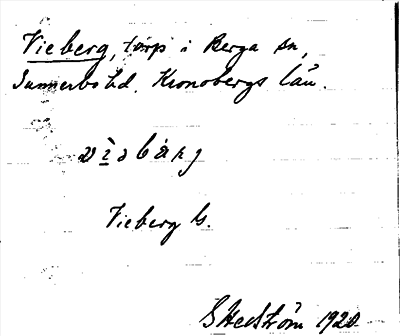 Vieberg, torp i Berga sn,
Sunnerbo hd. Kronobergs län.
Vieberg G.
G Hedström 1920